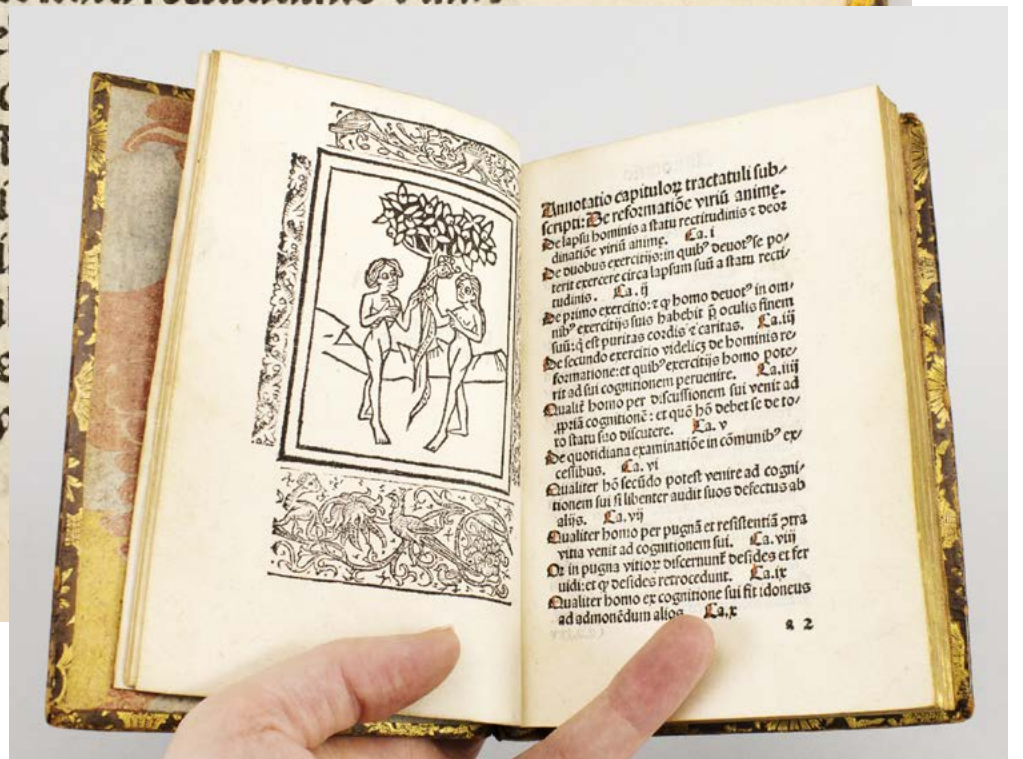 Annotatio capituloꝝ tractatuli sub⸗
scripti: De reformatiōe viriū animę.
De lapsu hominis a statu rectitudinis ⁊ deor
dinatiōe viriū animę. Ca. i
De duobus exercitijs: in quibꝰ deuotꝰ se po⸗
terit exercere circa lapsum suū a statu recti⸗
tudinis. Ca. ij
De primo exercitio: ⁊ ꝙ homo deuotꝰ in om⸗
nibꝰ exercitijs suis habebit p̄ oculis finem
suū: q̇ est puritas cordis ⁊ caritas. Ca. iij
De secundo exercitio videlicꝫ de hominis re⸗
formatione: et quibꝰ exercitijs homo pote⸗
rit ad sui cognitionem peruenire. Ca. iiij
Qualit̄ homo per discussionem sui venit ad
ꝓpriā cognitionē: et quō hō debet se de to⸗
to statu suo discutere. Ca. v
De quotidiana examinatiōe in cōmunibꝰ ex⸗
cessibus. Ca. vi
Qualiter hō secūdo potest venire ad cogni⸗
tionem sui si libenter audit suos defectus ab
alijs. Ca. vij
Qualiter homo per pugnā et resistentiā ꝯtra
vitia venit ad cognitionem sui. Ca. viij
Qꝛ in pugna vitioꝝ discernunt᷑ desides et fer
uidi: et ꝙ desides retrocedunt. Ca. ix
Qualiter homo ex cognitione sui fit idoneus
ad admonēdum alios. Ca. x
a 2